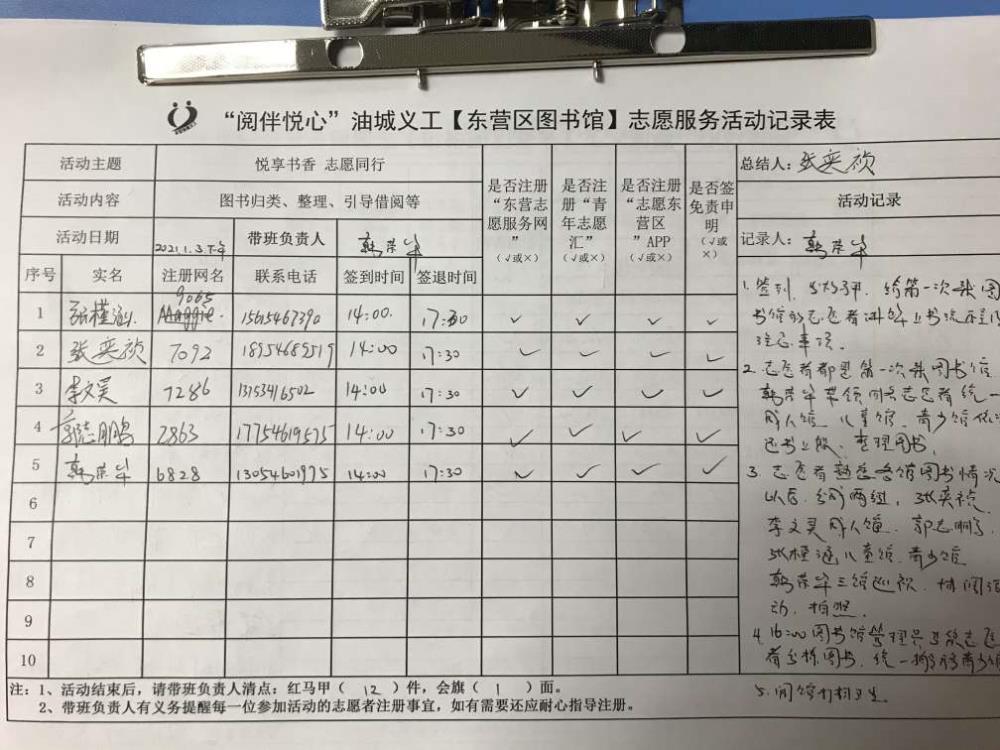 “阅伴悦心”油城义工【东营区图书馆】志愿服务活动记录表
活动主题 悦享书香 志愿同行
活动内容 图书归类、整理、引导借阅等
活动日期 2021.1.3.下午 带班负责人 韩荣华
是否注册“东营志愿服务网”（√或×）
是否注册“青年志愿汇”（√或×）
是否注册“志愿东营区”APP（√或×）
是否签免责申明（√或×）
序号 实名 注册网名 联系电话 签到时间 签退时间
1 张槿涵 9065 Maggie 15615467390 14:00. 17:30 √ √ √ √
2 张奕祯 7092 18954689519 14:00 17:30 √ √ √ √
3 李文昊 7286 13153416502 14:00 17:30 √ √ √ √
4 郭志鹏 2863 17754619575 14:00 17:30 √ √ √ √
5 韩荣华 6828 13054601975 14:00 17:30 √ √ √ √
6
7
8
9
10
注：1、活动结束后，请带班负责人清点：红马甲（ 12 ）件，会旗（ 1 ）面。
2、带班负责人有义务提醒每一位参加活动的志愿者注册事宜，如有需要还应耐心指导注册。
总结人：张奕祯
活动记录
记录人：韩荣华
1.签到，发放马甲，给第一次来图
书馆的志愿者讲解上书流程
注意事项。
2.志愿者都是第一次来图书馆
韩荣华带领同志愿者统一
成人馆、儿童馆、青少馆依次
把书上架、整理图书。
3.志愿者熟悉各馆图书情况
以后，分成两组，张奕祯
李文昊成人馆，郭志鹏
张槿涵儿童馆、青少馆
韩荣华三馆巡视、协调活
动、拍照。
4.16:00图书馆管理员
图书，统一搬
5.闭馆打扫卫生。